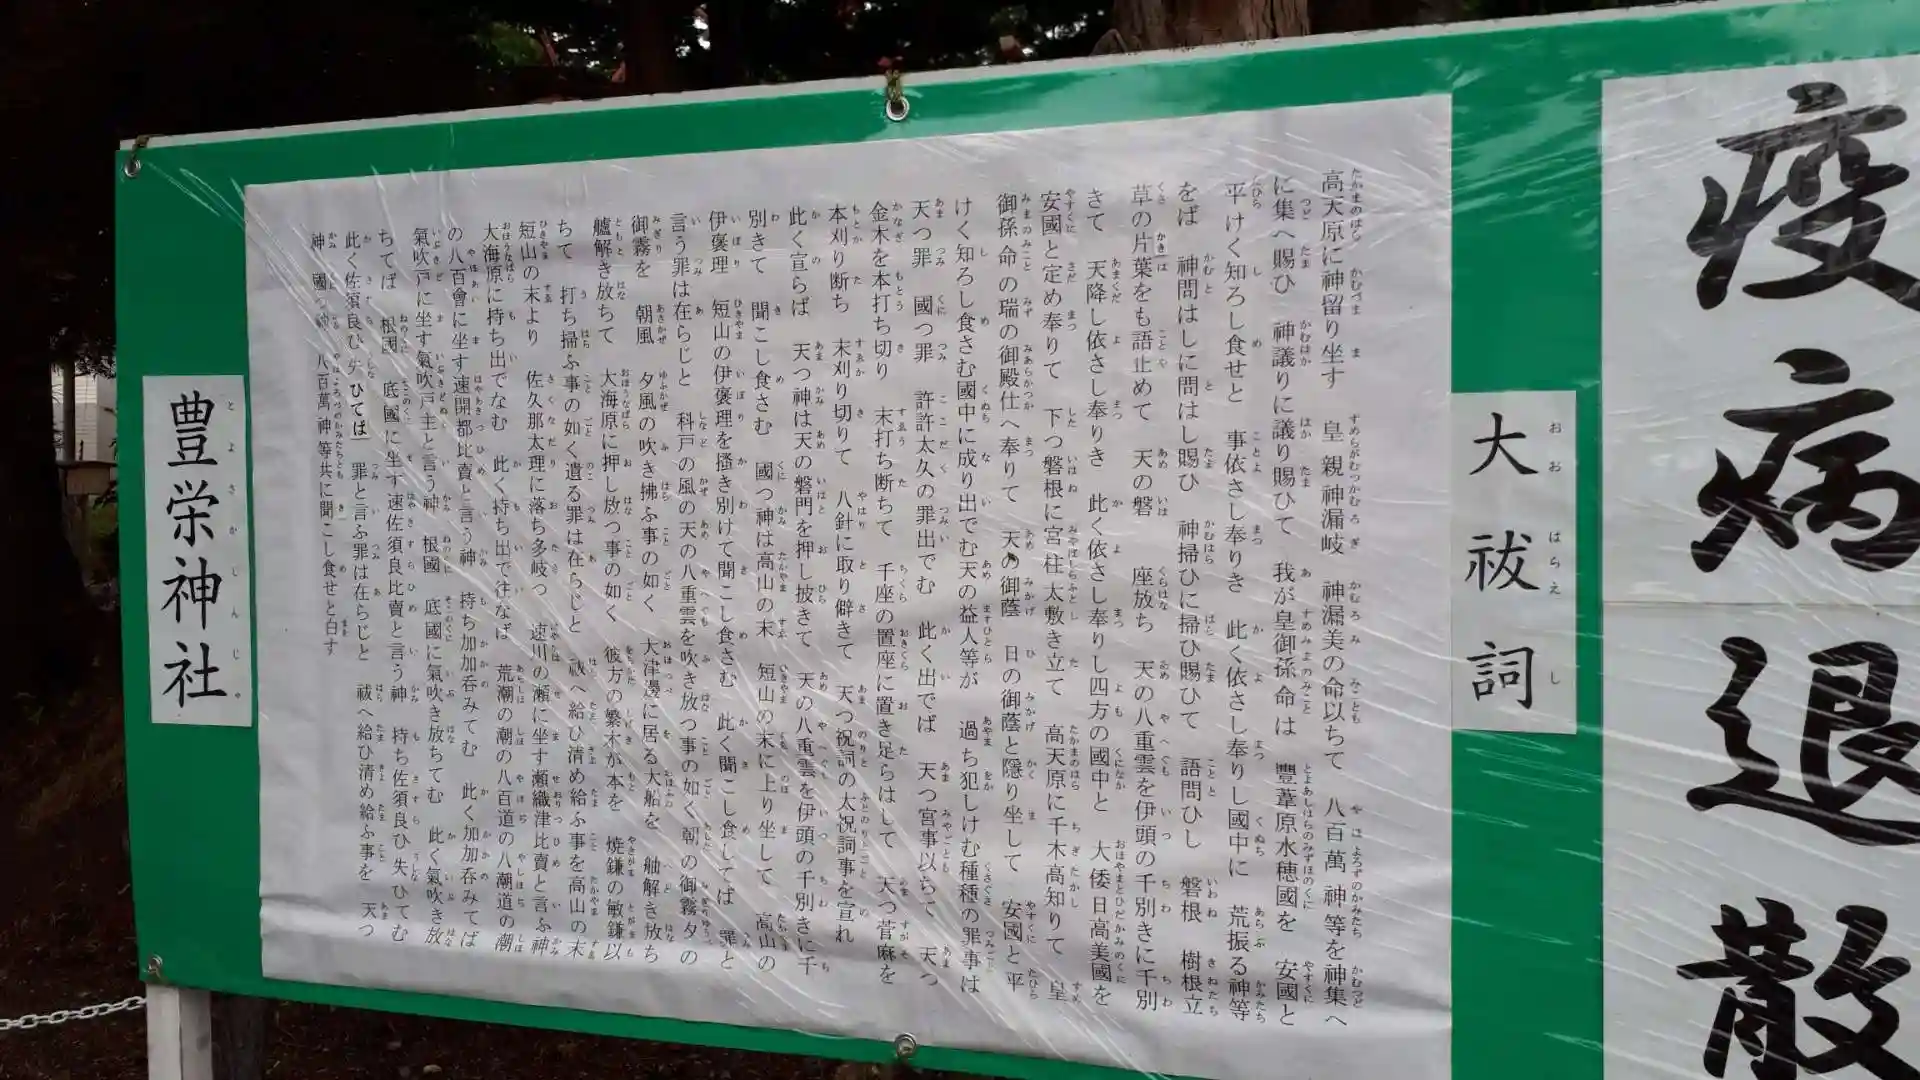 疫病退散
大祓詞
高天原に神留り坐す 皇親神漏岐 神漏美の命以ちて 八百萬神等を神集へ
に集へ賜ひ 神議りに議り賜ひて 我が皇御孫命は 豐葦原水穂國を 安國と
平けく知ろし食せと 事依さし奉りき 此く依さし奉りし國中に 荒振る神等
をば 神問はしに問はし賜ひ 神掃ひに掃ひ賜ひて 語問ひし 磐根 樹根立
草の片葉をも語止めて 天の磐座放ち 天の八重雲を伊頭の千別きに千別
きて 天降し依さし奉りき 此く依さし奉りし四方の國中と 大倭日高美國を
安國と定め奉りて 下つ磐根に宮柱太敷き立て 高天原に千木高知りて 皇
御孫命の瑞の御殿仕へ奉りて 天の御蔭 日の御蔭と隱り坐して 安國と平
けく知ろし食さむ國中に成り出でむ天の益人等が 過ち犯しけむ種種の罪事は
天つ罪 國つ罪 許許太久の罪出でむ 此く出でば 天つ宮事以ちて 天つ
金木を本打ち切り 末打ち断ちて 千座の置座に置き足らはして 天つ菅麻を
本刈り断ち 末刈り切りて 八針に取り辟きて 天つ祝詞の太祝詞事を宣れ
此く宣らば 天つ神は天の磐門を押し披きて 天の八重雲を伊頭の千別きに千
別きて 聞こし食さむ 國つ神は高山の末 短山の末に上り坐して 高山の
伊褒理 短山の伊褒理を搔き別けて聞こし食さむ 此く聞こし食してば 罪と
言う罪は在らじと 科戸の風の天の八重雲を吹き放つ事の如く 朝の御霧夕の
御霧を 朝風 夕風の吹き拂ふ事の如く 大津邊に居る大船を 舳解き放ち
艫解き放ちて 大海原に押し放つ事の如く 彼方の繁木が本を 焼鎌の敏鎌以
ちて 打ち掃ふ事の如く 遺る罪は在らじと 祓へ給ひ清め給ふ事を 高山の末
短山の末より 佐久那太理に落ち多岐つ 速川の瀬に坐す瀬織津比賣と言ふ神
大海原に持ち出でなむ 此く持ち出で往なば 荒潮の潮の八百道の八潮道の潮
の八百會に坐す速開都比賣と言う神 持ち加加呑みてむ 此く加加呑みてば
氣吹戸に坐す氣吹戸主と言う神 根國 底國に氣吹き放ちてむ 此く氣吹き放
ちてば 根國 底國に坐す速佐須良比賣と言う神 持ち佐須良ひ失ひてむ
此く佐須良ひ失ひてば 罪と言ふ罪は在らじと 祓へ給ひ清め給ふ事を 天つ
神 國つ神 八百萬神等共に聞こし食せと白す
豊栄神社